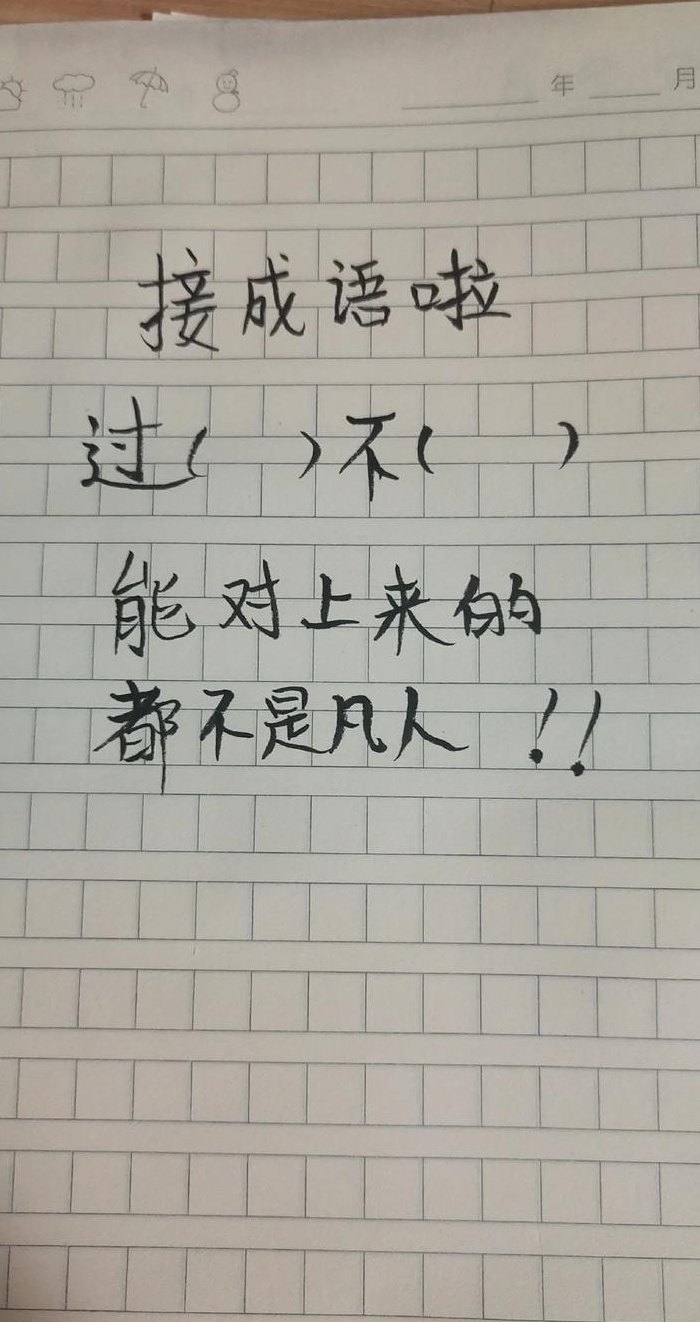 年 月
接成语啦
过( )不( )
能对上来的
都不是凡人!!